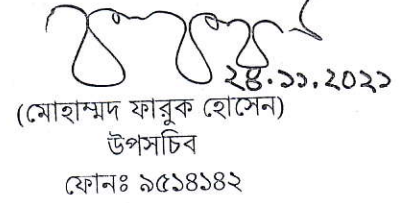 ২৪.১১.২০২১
(মোহাম্মদ ফারুক হোসেন)
উপসচিব
ফোনঃ ৯৫১৪১৪২